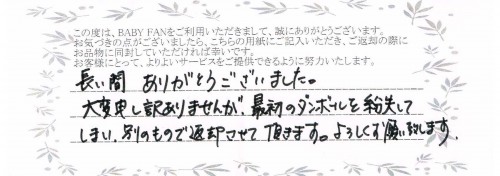 この度は、BABY FANをご利用いただきまして、誠にありがとうございます。
お気づきの点がございましたら、こちらの用紙にご記入いただき、ご返却の際に
お品物に同封していただければ幸いです。
お客様にとって、よりよいサービスをご提供できるように努力いたします。
長い間 ありがとうございました。
大変申し訳ありませんが、最初のダンボールを紛失して
しまい、別のもので返却させて頂きます。よろしくお願い致します。